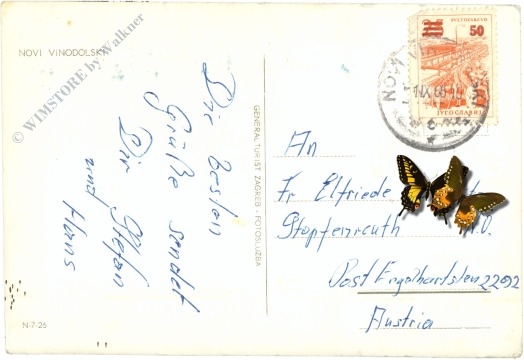 NOVI VINODOLSKI
© WIMSTORE by Walkner
Die besten
Grüße sendet
Dir Stefan
und Hans
GENERALTURIST ZAGREB - FOTOSLUŽBA
N-7-26
50
NOVI
IX
An
Fr Elfriede
Stopfenreuth
Post Engelhartsten 2292
Austria